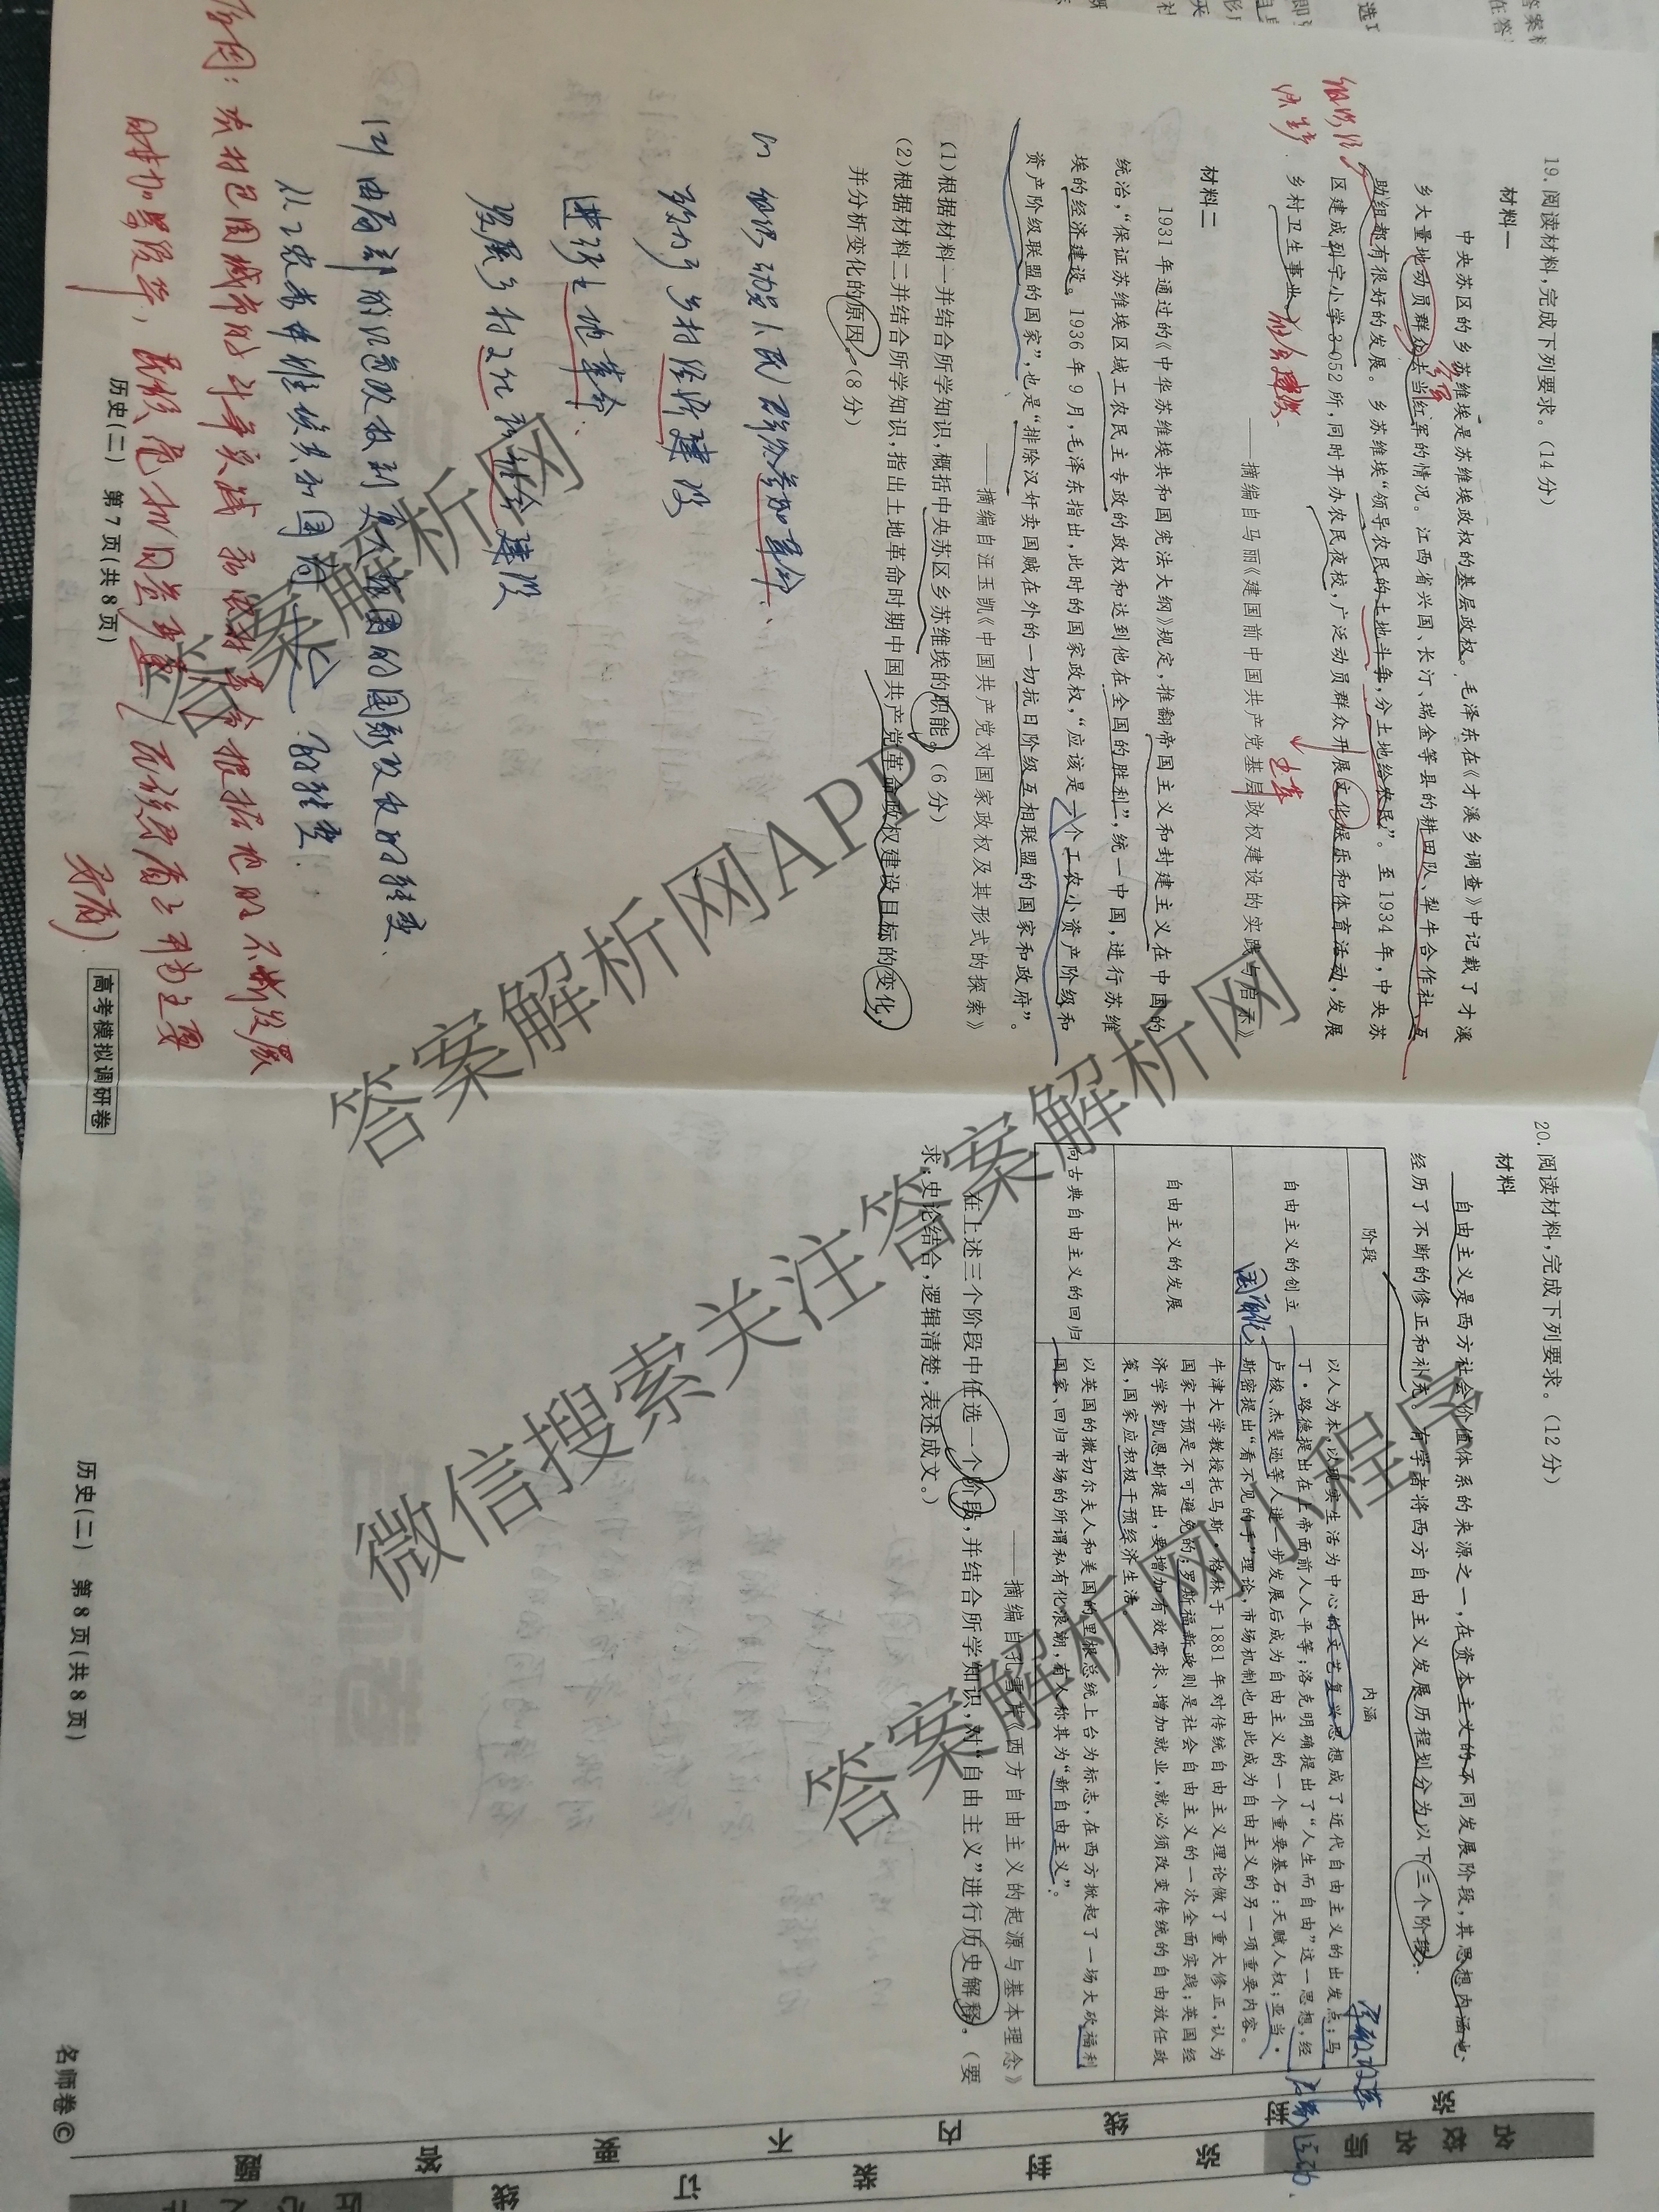 19. 阅读材料,完成下列要求。(14分)
材料一
中央苏区的乡苏维埃是苏维埃政权的基层政权。毛泽东在《才溪乡调查》中记载了才溪
乡大量地动员群众去当红军的情况。江西省兴国、长汀、瑞金等县的耕田队、犁牛合作社、互
助组都有很好的发展。乡苏维埃“领导农民的土地斗争,分土地给农民”。至1934年,中央苏
区建成列宁小学3052所,同时开办农民夜校,广泛动员群众开展文化娱乐和体育活动,发展
乡村卫生事业。
——摘编自马丽《建国前中国共产党基层政权建设的实践与启示》
材料二
1931年通过的《中华苏维埃共和国宪法大纲》规定,推翻帝国主义和封建主义在中国的
统治,“保证苏维埃区域工农民主专政的政权和达到他在全国的胜利”,统一中国,进行苏维
埃的经济建设。1936年9月,毛泽东指出,此时的国家政权,“应该是一个工农小资产阶级和
资产阶级联盟的国家”,也是“排除汉奸卖国贼在外的一切抗日阶级互相联盟的国家和政府”。
——摘编自汪玉凯《中国共产党对国家政权及其形式的探索》
(1)根据材料一并结合所学知识,概括中央苏区乡苏维埃的职能。(6分)
(2)根据材料二并结合所学知识,指出土地革命时期中国共产党革命政权建设目标的变化,
并分析变化的原因。(8分)
组织动员人民群众参加革命、
致力于乡村经济建设
进行土地革命.
发展乡村文化和社会建设
(2) 由局部的红色政权到更大范围的国家政权的转变.
从工农苏维埃共和国向 的转变.
原因: 农村包围城市的斗争实践和农村革命根据地的不断发展
日本加紧侵华,民族危机日益严重(民族矛盾上升为主要
矛盾)
历史(二) 第7页(共8页)
高考模拟调研卷
20. 阅读材料,完成下列要求。(12分)
材料
自由主义是西方社会价值体系的来源之一,在资本主义的不同发展阶段,其思想内涵也
经历了不断的修正和补充。有学者将西方自由主义发展历程划分为以下三个阶段:
阶段 内涵
自由主义的创立
以人为本,以现实生活为中心的文艺复兴思想成了近代自由主义的出发点;马
丁·路德提出在上帝面前人人平等;洛克明确提出了“人生而自由”这一思想,经
卢梭、杰斐逊等人进一步发展后成为自由主义的一个重要基石:天赋人权;亚当·
斯密提出“看不见的手”理论,市场机制也由此成为自由主义的另一项重要内容。
自由主义的发展
牛津大学教授托马斯·格林于1881年对传统自由主义理论做了重大修正,认为
国家干预是不可避免的;罗斯福新政则是社会自由主义的一次全面实践;英国经
济学家凯恩斯提出,要增加有效需求、增加就业,就必须改变传统的自由放任政
策,国家应积极干预经济生活
向古典自由主义的回归
以英国的撒切尔夫人和美国的里根总统上台为标志,在西方掀起了一场大砍福利
国家、回归市场的所谓私有化浪潮,有人称其为“新自由主义”。
——摘编自孔雪芹《西方自由主义的起源与基本理念》
在上述三个阶段中任选一个阶段,并结合所学知识,对“自由主义”进行历史解释。(要
求:史论结合,逻辑清楚,表述成文。)
历史(二) 第8页(共8页)
名师卷©
宗教改革
启蒙运动.
答案解析网
答案解析网APP
微信搜索关注答案解析网
答案解析网